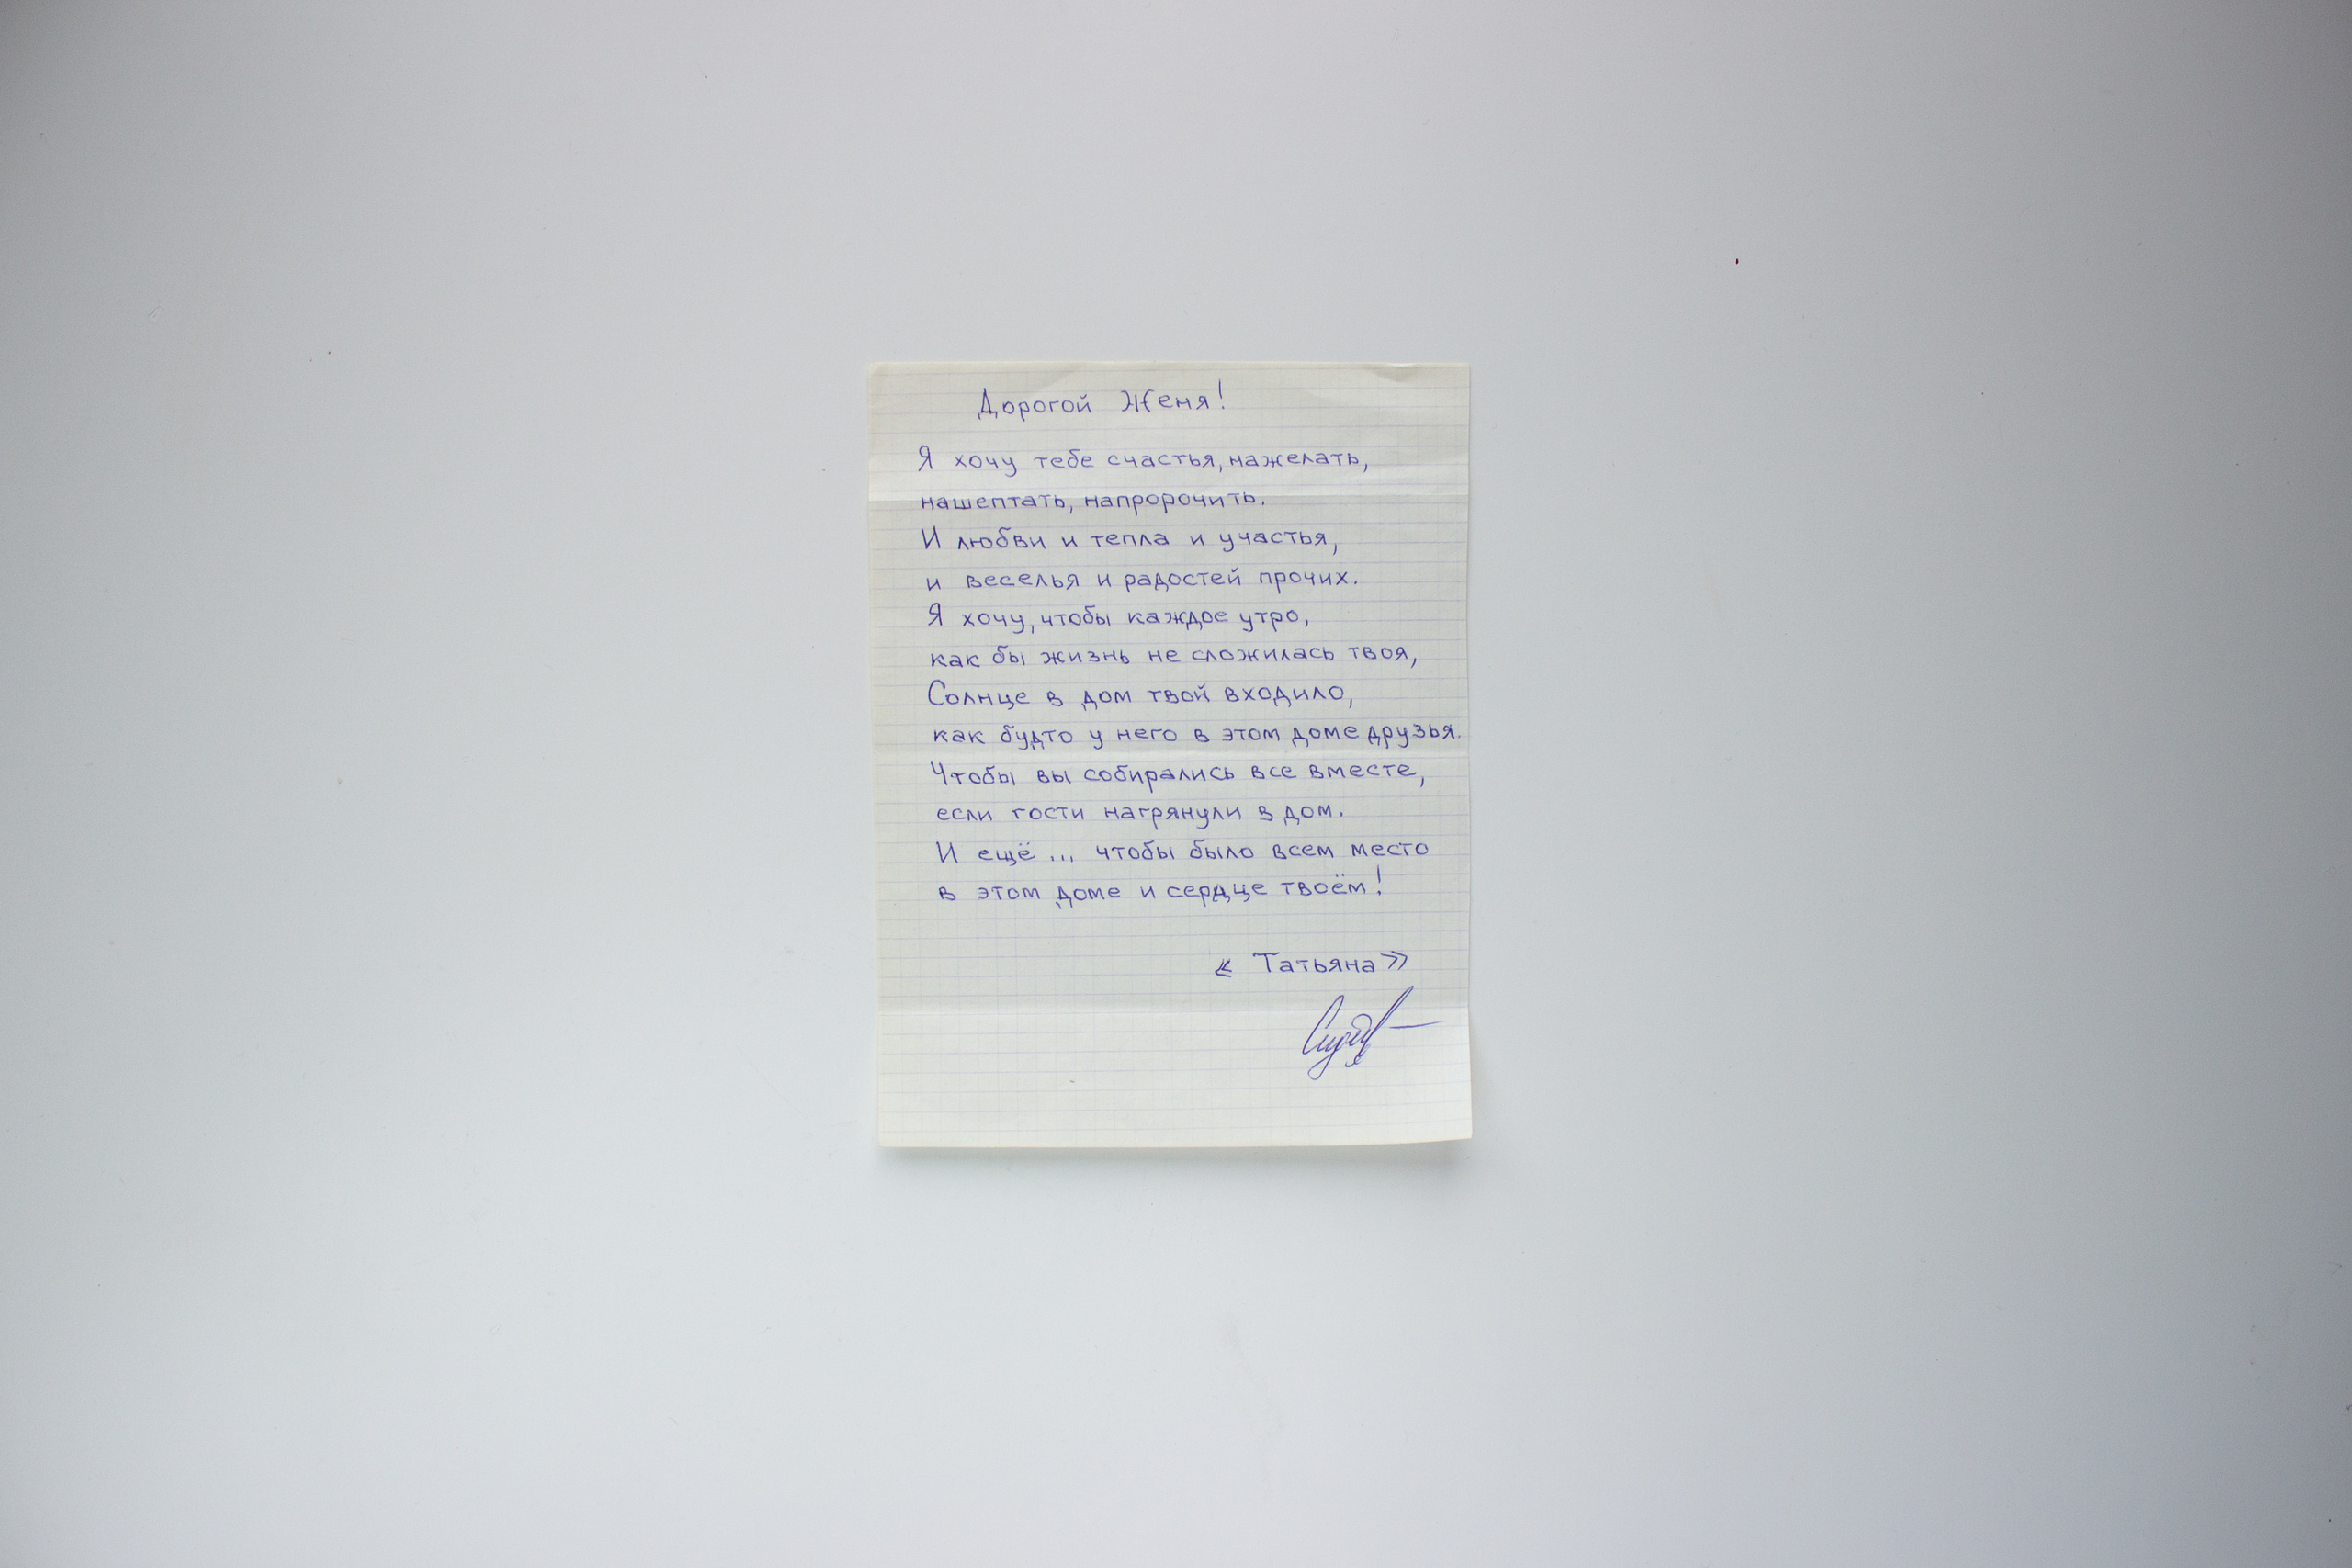 Дорогой Женя!
Я хочу тебе счастья, нажелать,
нашептать, напророчить.
И любви и тепла и участья,
и веселья и радостей прочих.
Я хочу, чтобы каждое утро,
как бы жизнь не сложилась твоя,
Солнце в дом твой входило,
как будто у него в этом доме друзья.
Чтобы вы собирались все вместе,
если гости нагрянули в дом.
И ещё ... чтобы было всем место
в этом доме и сердце твоём!
« Татьяна »